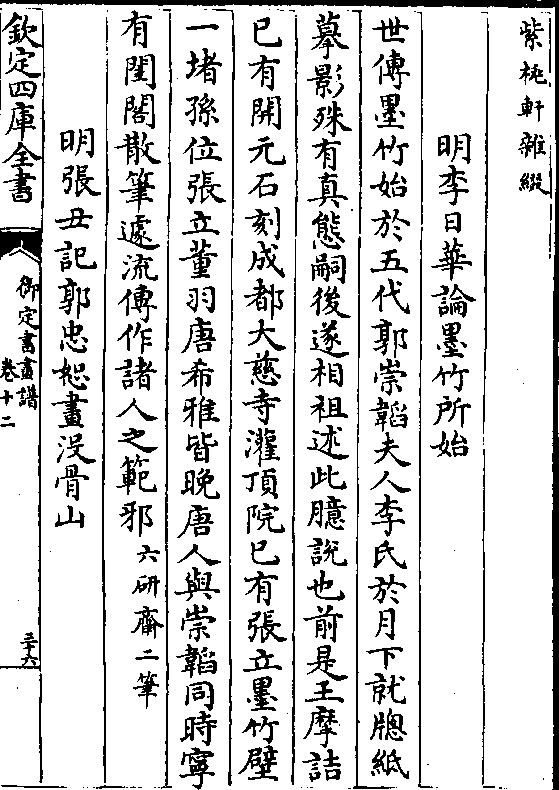 紫桃軒雜綴
明李日華論墨竹所始
世傳墨竹始於五代郭崇韜夫人李氏於月下就牕紙
摹影殊有真態嗣後遂相祖述此臆說也前是王摩詰
已有開元石刻成都大慈寺灌頂院已有張立墨竹壁
一堵孫位張立董羽唐希雅皆晚唐人與崇韜同時寧
有閨閤散筆遽流傳作諸人之範邪六研齋二筆
明張丑記郭忠恕畫没骨山
欽定四庫全書
御定書畫譜
卷十二
三十六